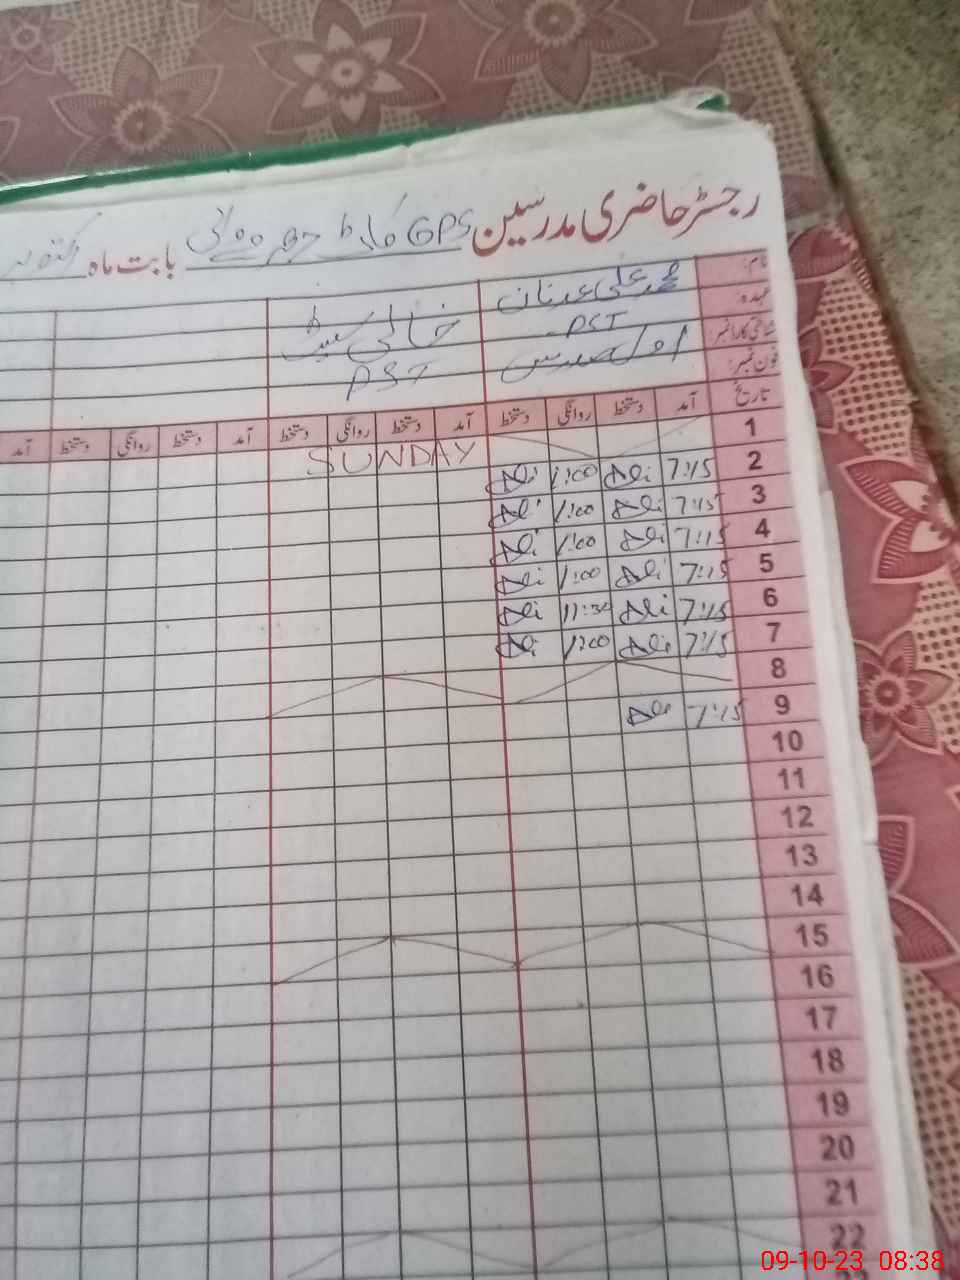 رجسٹر حاضری مدرسین GPS بابت ماہ
نام: محمد علی عدنان خالی سیٹ
عہدہ: PST
شناختی کارڈ نمبر: اول مدرس PST
فون نمبر:
تاریخ آمد دستخط روانگی دستخط آمد دستخط روانگی دستخط آمد دستخط روانگی دستخط آمد
1 SUNDAY
2 7:15 Ali 1:00 Ali
3 7:15 Ali 1:00 Ali
4 7:15 Ali 1:00 Ali
5 7:15 Ali 1:00 Ali
6 7:15 Ali 11:30 Ali
7 7:15 Ali 1:00 Ali
8
9 7:15 Ali
10
11
12
13
14
15
16
17
18
19
20
21
22
09-10-23 08:38